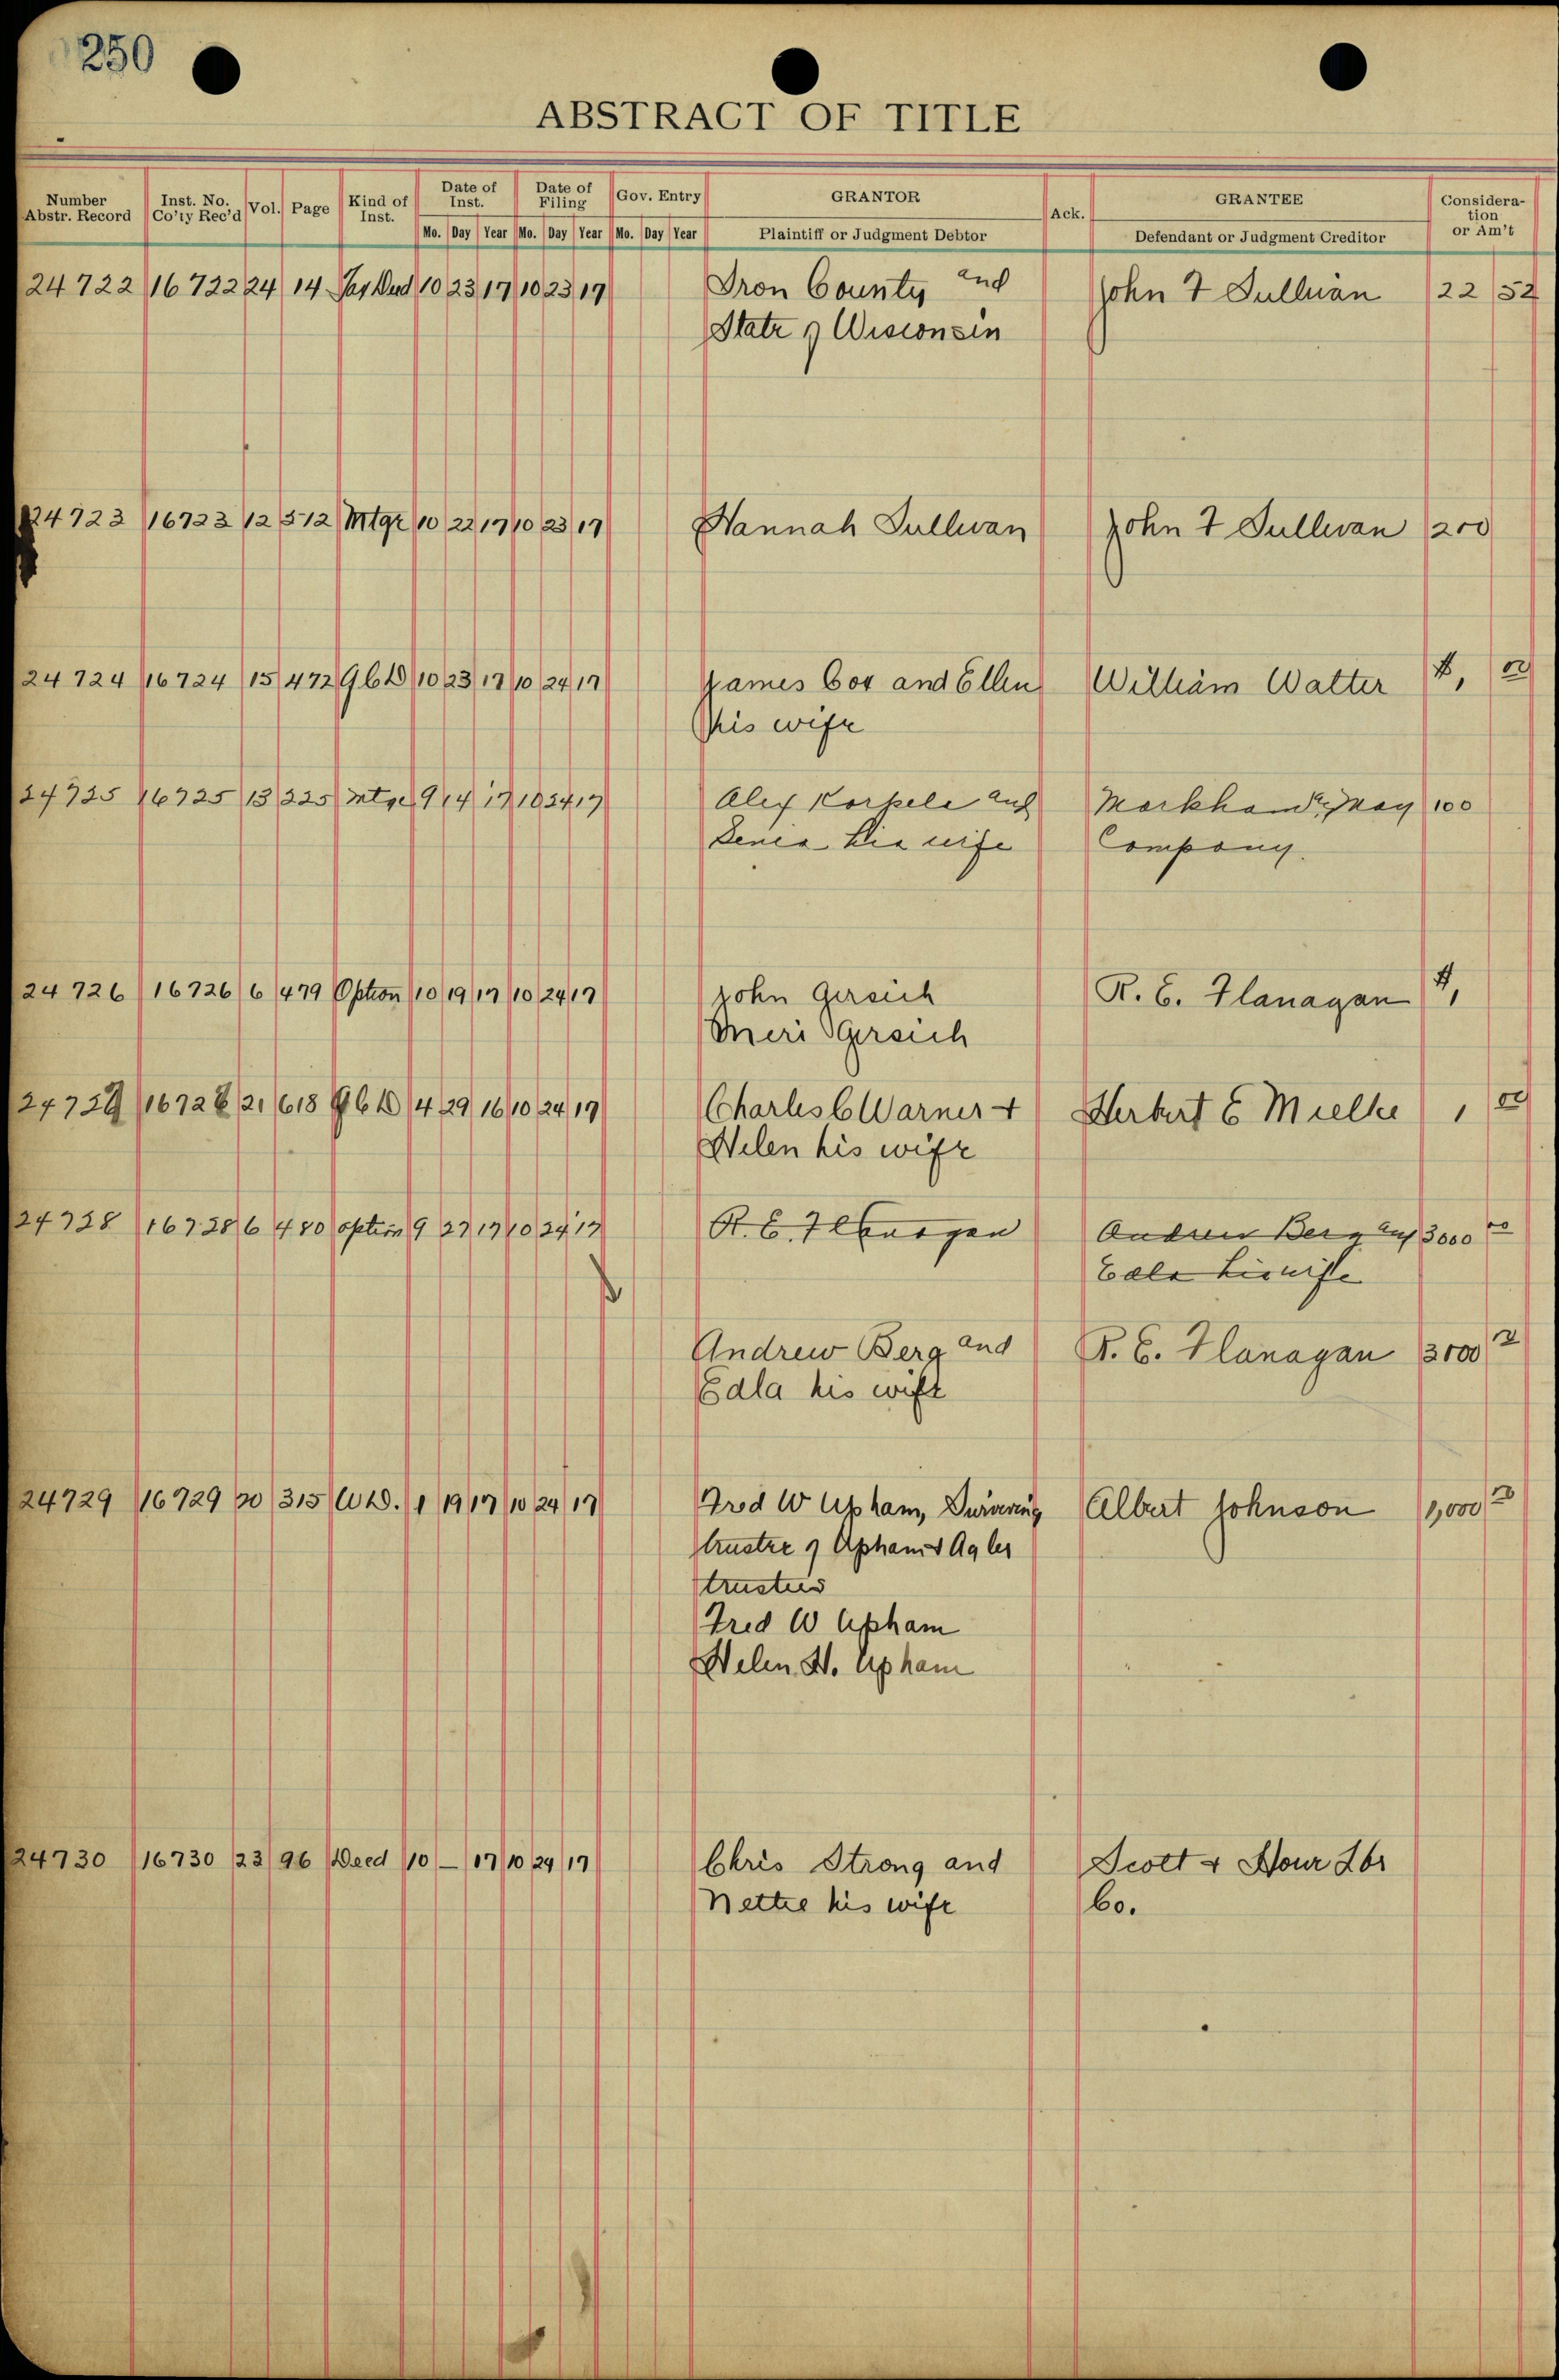 250
ABSTRACT OF TITLE
Number Abstr. Record Inst. No. Co'ty Rec'd Vol. Page Kind of Inst. Date of Inst. Date of Filing Gov. Entry GRANTOR Ack. GRANTEE Consideration or Am't
Mo. Day Year Mo. Day Year Mo. Day Year Plaintiff or Judgment Debtor Defendant or Judgment Creditor
24722 16722 24 14 Tax Deed 10 23 17 10 23 17 Iron County and John F Sullivan 22 52
State of Wisconsin
24723 16723 12 512 Mtge 10 22 17 10 23 17 Hannah Sullivan John F Sullivan 200
24724 16724 15 472 QCD 10 23 17 10 24 17 James Cox and Ellen William Walter $1, 00
his wife
24725 16725 13 225 Mtge 9 14 17 10 24 17 Alex Korpela and 100
his wife Company.
24726 16726 6 479 Option 10 19 17 10 24 17 John Gersich R. E. Flanagan $1,
Meri Gersich
21 618 QCD 4 29 16 10 24 17 Charles C Warner + Herbert E Mielke 1 00
Helen his wife
24728 16728 6 480 option 9 27 17 10 24 17 R. E. Flanagan Andrew Berg and 3000 00
Edla his wife
Andrew Berg and R. E. Flanagan 3000 00
Edla his wife
24729 16729 20 315 WD. 1 19 17 10 24 17 Fred W Upham, Surviving Albert Johnson 1,000 00
trustee of Upham & Agler
trustees
Fred W Upham
Helen H. Upham
24730 16730 23 96 Deed 10 — 17 10 24 17 Chris Strong and Scott & Howe Lbr
Nettie his wife Co.